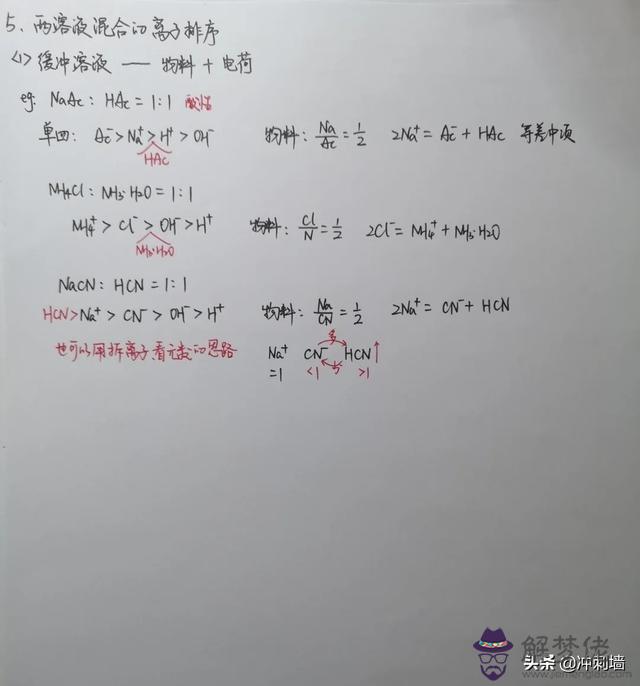 5、两溶液混合的离子排序
(1) 缓冲溶液 —— 物料 + 电荷
eg: NaAc : HAc = 1:1 酸性
单四: Ac⁻ > Na⁺ > H⁺ > OH⁻ 物料: Na/Ac = 1/2 2Na⁺ = Ac⁻ + HAc 等差中项
HAc
NH₄Cl : NH₃·H₂O = 1:1
NH₄⁺ > Cl⁻ > OH⁻ > H⁺ 物料: Cl/N = 1/2 2Cl⁻ = NH₄⁺ + NH₃·H₂O
NH₃·H₂O
NaCN : HCN = 1:1
HCN > Na⁺ > CN⁻ > OH⁻ > H⁺ 物料: Na/CN = 1/2 2Na⁺ = CN⁻ + HCN
也可以用拆离子看元数的思路
多
Na⁺ CN⁻ HCN↑
少
=1 <1 >1
解梦佬
www.jiemenglao.com
头条 @冲刺墙